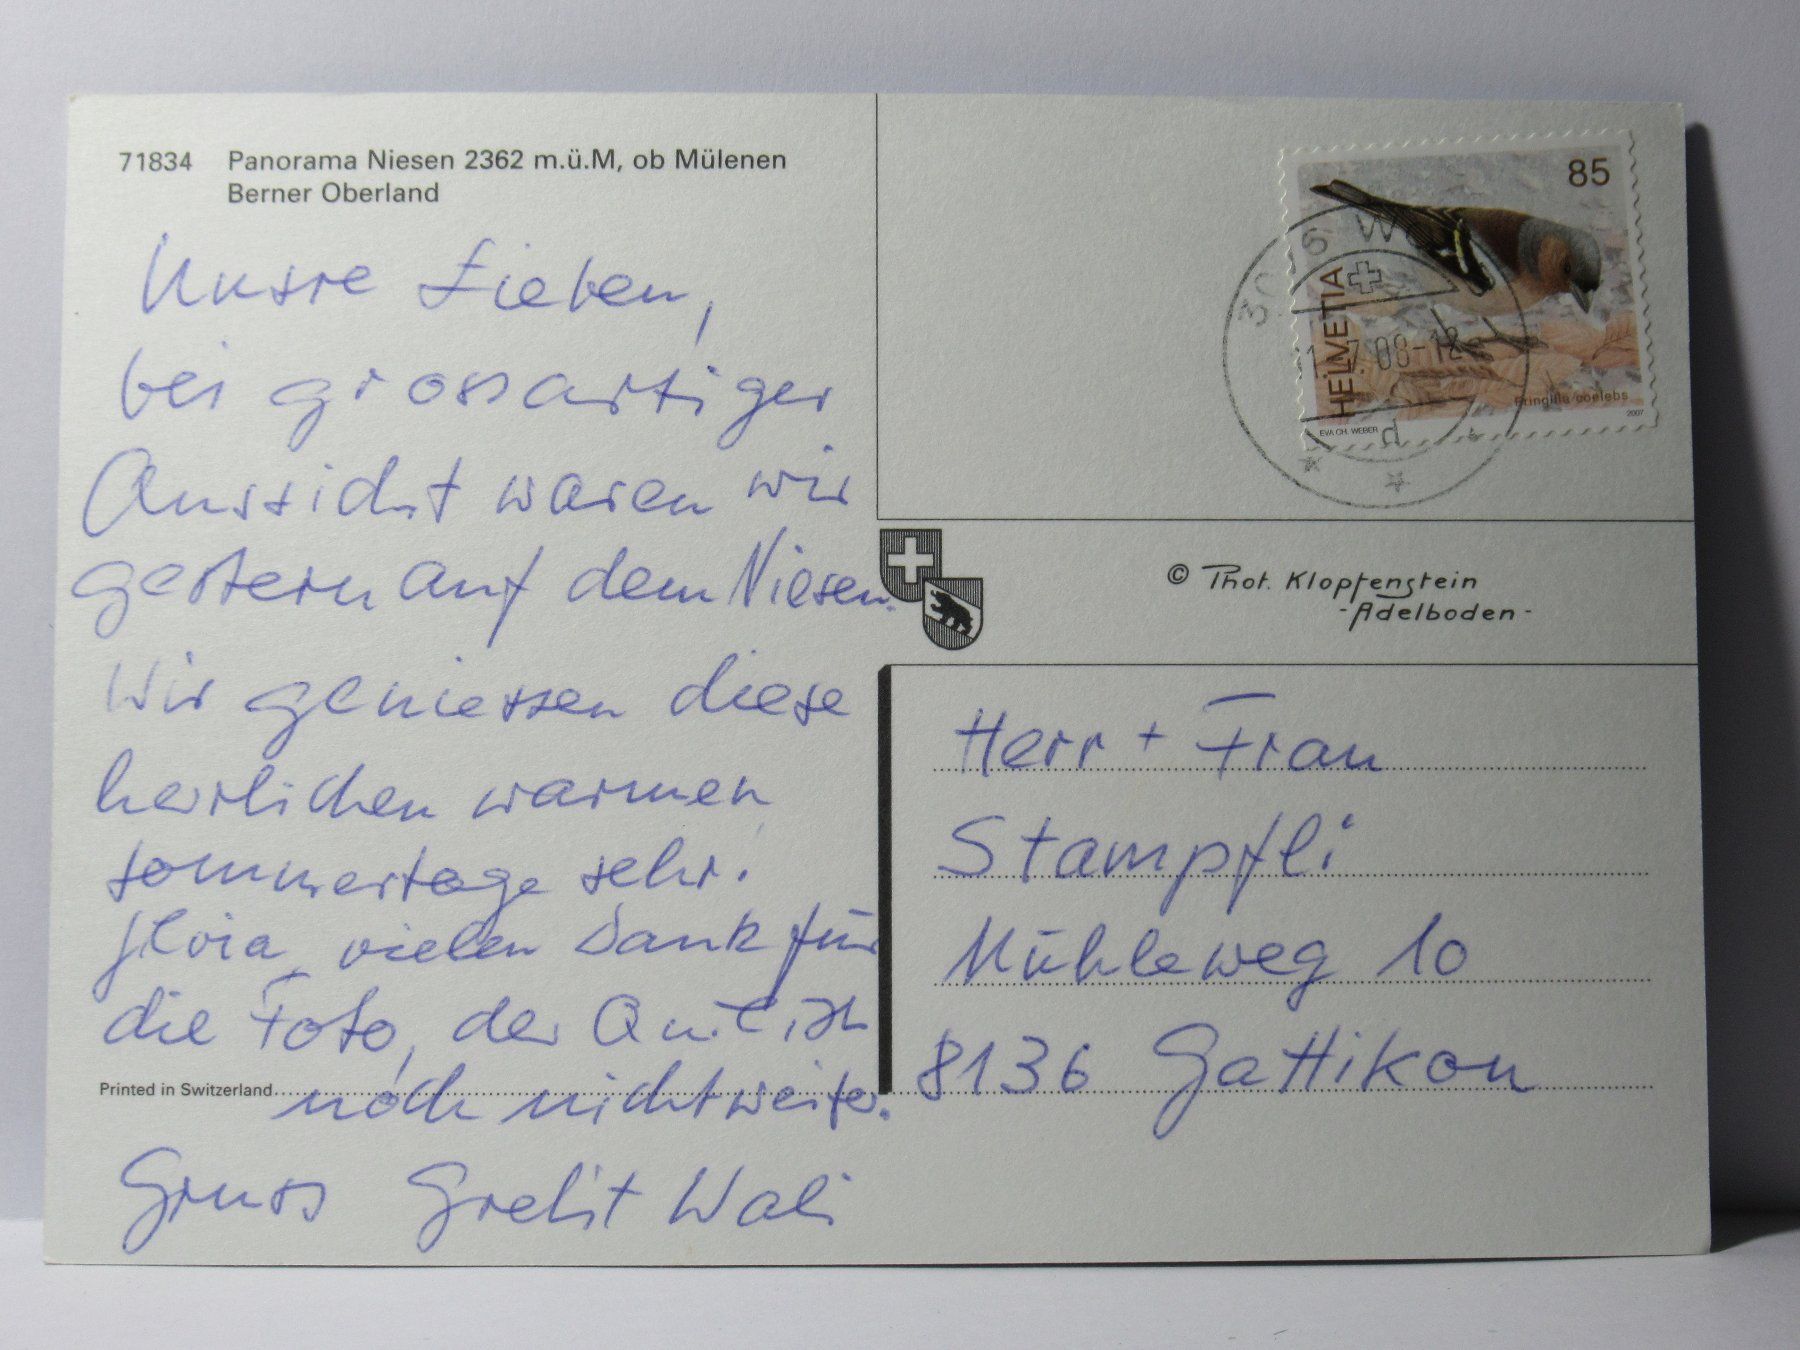 71834 Panorama Niesen 2362 m.ü.M, ob Mülenen
Berner Oberland
Unsre Lieben,
bei grossartiger
Aussicht waren wir
gestern auf dem Niesen.
Wir geniessen diese
herrlichen warmen
Sommertage sehr.
vielen Dank für
die Foto, der ist
noch nicht weiter.
Gruss Wali
Printed in Switzerland
85
HELVETIA
Fringilla coelebs
2007
EVA CH. WEBER
1.7.08-12
d
© Phot. Klopfenstein
-Adelboden-
Herr + Frau
Stampfli
Mühleweg 10
8136 Gattikon